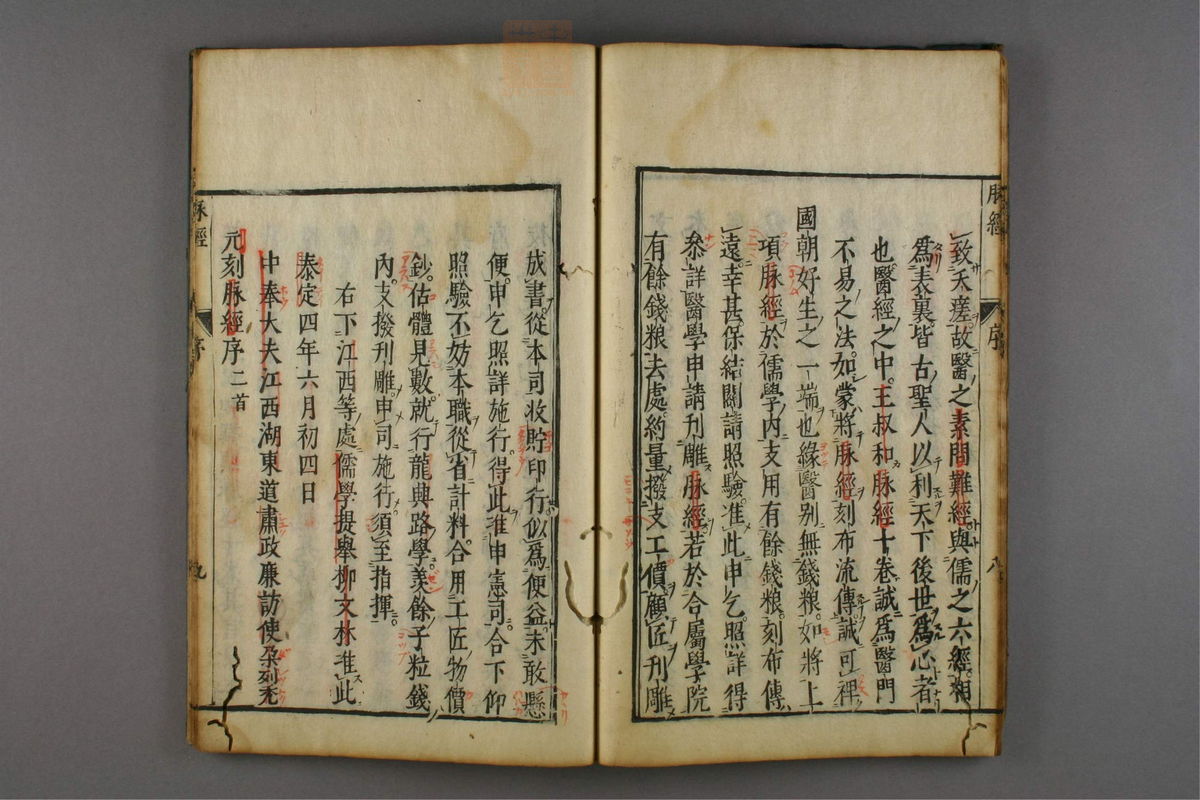 脉經 序 八
致夭瘥故醫之素問難經與儒之六經相
爲表裏皆古聖人以利天下後世爲心者
也醫經之中王叔和脉經十卷誠爲醫門
不易之法如蒙將脉經刻布流傳誠可裨
國朝好生之一端也緣醫别無錢粮如將上
項脉經於儒學内支用有餘錢粮刻布傳
遠幸甚保結關請照驗准此申乞照詳得
叅詳醫學申請刊雕脉經若於合屬學院
有餘錢粮去處約量撥支工價顧匠刊雕
成書從本司收貯印行似爲便益未敢懸
便申乞照詳施行得此准申憲司合下仰
照驗不妨本職從省計料合用工匠物價
鈔估體見數就行龍興路學羨餘子粒錢
内支撥刊雕申司施行須至指揮
右下江西等處儒學提舉柳文林准此
泰定四年六月初四日
中奉大夫江西湖東道肅政廉訪使朶列禿
元刻脉經序二首
脉經 序 九